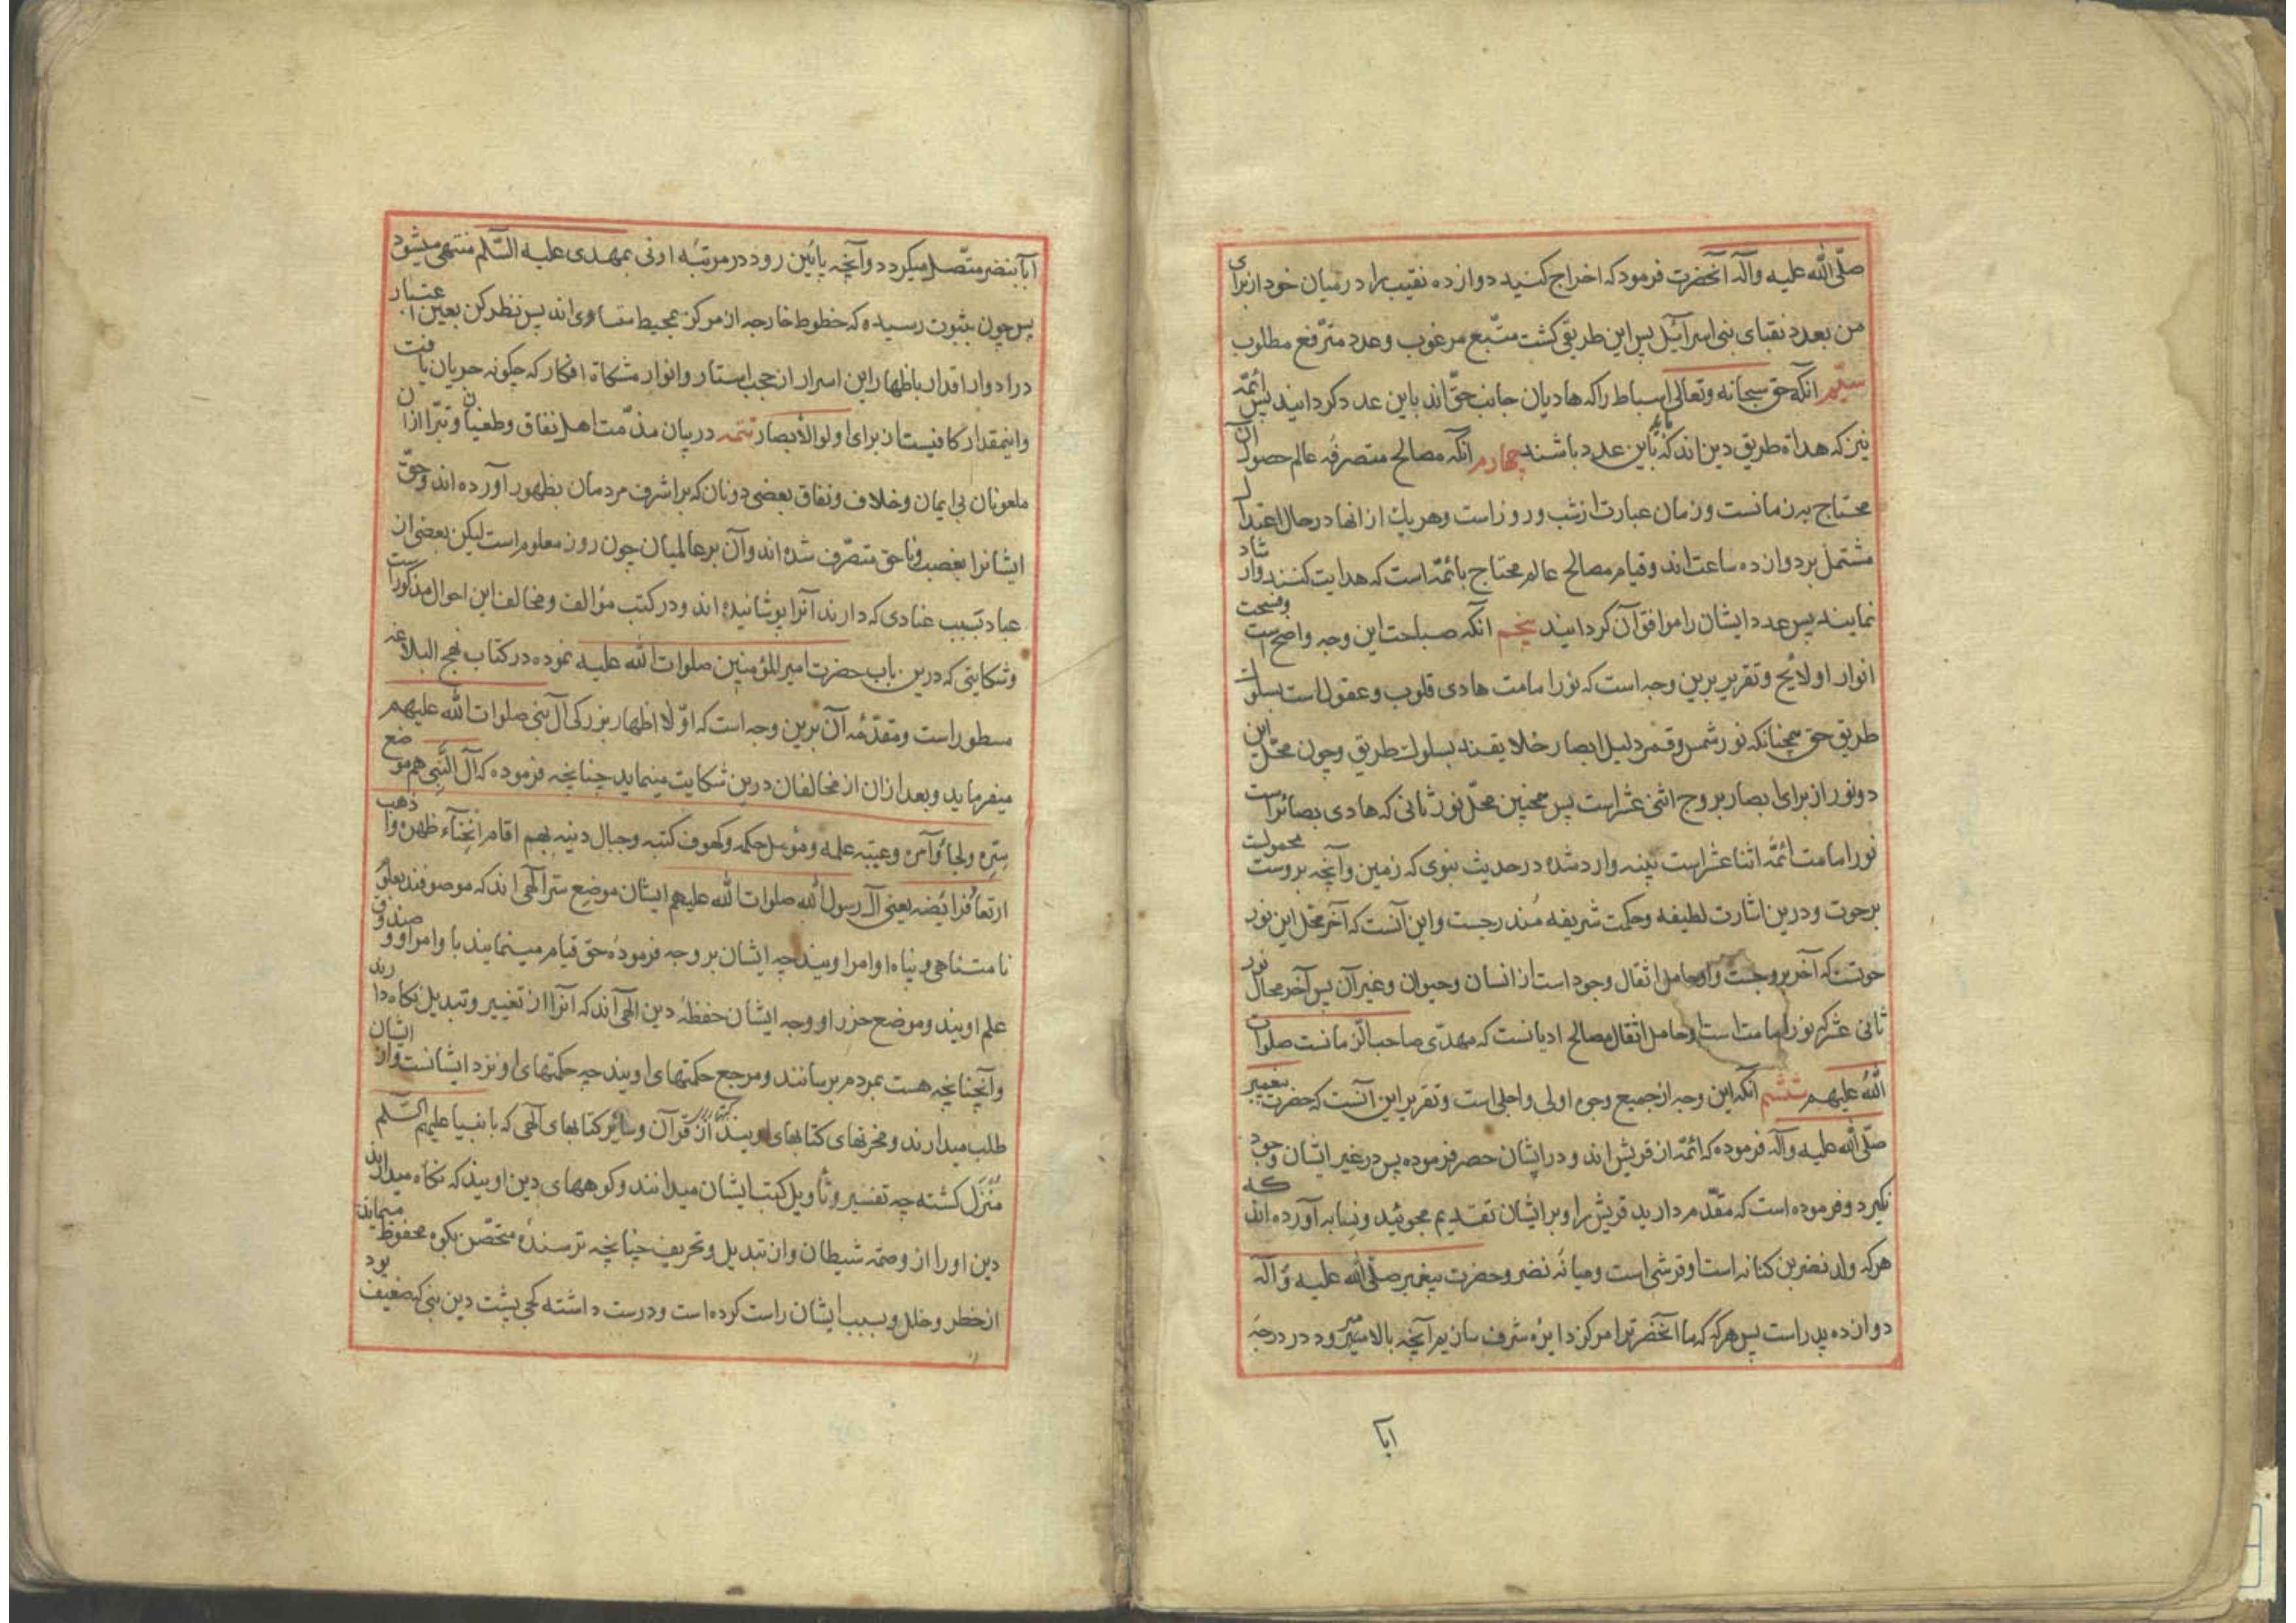 صلّی الله علیه وآله آنحضرت فرمود که اخراج کنید دوازده نقیب را در میان خود از برای
من بعدد نقبای بنی اسرائیل پس این طریقی کشت متّبع مرغوب وعدد مترفع مطلوب
سیّم انکه حق سبحانه وتعالی اسباط را که هادیان جانب حقّ اند باین عدد کردانید پس ائمّه
نیز که هداة طریق دین اند که باید باین عدد باشند چهارم انکه مصالح متصرفه عالم حصول آن
محتاج بزمانست وزمان عبارت از شب وروز است وهر یك از انها در حال اعتدال
مشتمل بر دوازده ساعت اند وقیام مصالح عالم محتاج بائمّه است که هدایت کنند وارشاد
نمایند پس عدد ایشان را موافق آن کردانید پنجم انکه صباحت این وجه واضح است وفسحت
انوار او لایح وتقریر برین وجه است که نور امامت هادی قلوب وعقول است بسلوك
طریق حق همچنانکه نور شمس وقمر دلیل ابصار خلایقند بسلوك طریق وچون محلّ این
دو نور از برای ابصار بروج اثنی عشر است پس همچنین محلّ نور ثانی که هادی بصائر است
نور امامت ائمّه اثنا عشر است تنبنه وارد شده در حدیث نبوی که زمین وآنچه بروست محمولست
برحوت ودرین اشارت لطیفه وحکمت شریفه مندرجست واین آنست که آخر محلّ این نور
حوتست که آخر بروجست واو حامل اثقال وجود است از انسان وحیوان وغیر آن پس آخر محال نور
ثانی عشر که نور امامت است وحامل اثقال مصالح ادیانست که مهدّی صاحب الزمانست صلوات
الله علیهم ششم انکه این وجه از جمیع وجوه اولی واجلی است وتقریر این آنست که حضرت پیغمبر
صلّی الله علیه وآله فرموده که ائمّه از قریش اند ودر ایشان حصر فرموده پس در غیر ایشان وجود
نکیرد وفرموده است که مقدّم دارید قریش را وبر ایشان تقدیم مجوئید ونسابه آورده اند که
هر که ولد نضر بن کنانه است او قرشی است ومیانه نضر وحضرت پیغمبر صلّی الله علیه وآله
دوازده پدر است پس هر که که ما آنحضرترا مرکز دایره شرف سازیم آنچه بالا میرود در درجه
ابا
ابا بنضر متّصل میکردد وآنچه پائین رود در مرتبه اونی بمهدی علیه السّلم منتهی میشود
پس چون بثبوت رسیده که خطوط خارجه از مرکز بمحیط متساوی اند پس نظر کن بعین اعتبار
در ادوار اقدار باظهار این اسرار از حجب استار وانوار مشکاة افکار که چکونه جریان یافت
واینمقدار کافیست از برای اولوالابصار تتمه در بیان مذمّت اهل نفاق وطغیان وتبرّا ازان
ملعونان بی ایمان وخلاف ونفاق بعضی دونان که بر اشرف مردمان بظهور آورده اند وحقّ
ایشانرا بغصب وناحق متصرّف شده اند وآن بر عالمیان چون روز معلوم است لیکن بعضی از
عباد بسبب عنادی که دارند آنرا پوشانیده اند ودر کتب مؤالف ومخالف این احوال مذکور است
وشکایتی که درین باب حضرت امیر المؤمنین صلوات الله علیه نموده در کتاب نهج البلاغه
مسطور است ومقدّمه آن برین وجه است که اوّلا اظهار بزرکی آل نبی صلوات الله علیهم
میفرماید وبعد ازان از مخالفان درین شکایت مینماید چنانچه فرموده که آل النّبی هم موضع
سرّه ولجاء امره وعیبة علمه وموئل حکمه وکهوف کتبه وجبال دینه بهم اقام انحناء ظهره واذهب
ارتعاد فرائضه یعنی آل رسول الله صلوات الله علیهم ایشان موضع سرّ الهی اند که موصوفند بعلوّ
نامتناهی وپناه اوامر اویند چه ایشان بر وجه فرمودهٔ حق قیام مینمایند باوامر او وصندوق
علم اویند وموضع حرز او وجه ایشان حفظهٔ دین الهی اند که انرا از تغییر وتبدیل نکاه دارند
وآنچنانچه هست بمردم برسانند ومرجع حکمتهای اویند چه حکمتهای او نزد ایشانست واز ایشان
طلب میدارند ومخزنهای کتابهای اویند از قرآن وسائر کتابهای آلهی که بانبیا علیهم السّلم
منزل کشته چه تفسیر وتأویل کتب ایشان میدانند وکوههای دین اویند که نکاه میدارند
دین او را از وصمهٔ شیطان واز تبدیل وتحریف چنانچه ترسنده متحصّن بکوه محفوظ میماند
از خطر وخلل وبسبب ایشان راست کرده است ودرست داشته کجی پشت دین نبی که ضعیف بود